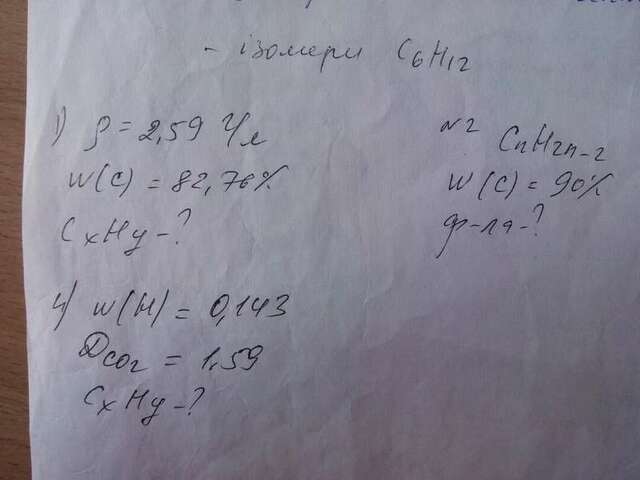 - ізомери C6H12
1) ρ = 2,59 г/л
W(C) = 82,76%
CxHy - ?
№2 CnH2n-2
W(C) = 90%
ф-ла - ?
4) W(H) = 0,143
DCO2 = 1,59
CxHy - ?